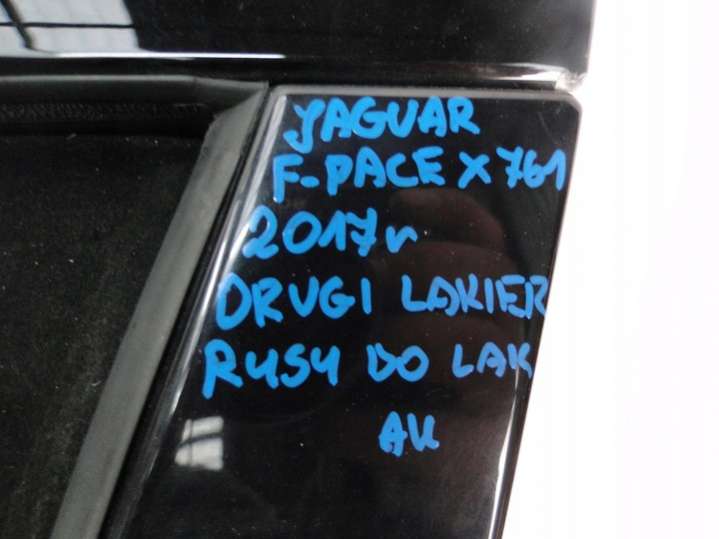 JAGUAR
F-PACE X761
2017r
DRUGI LAKIER
RYSY DO LAK
AU